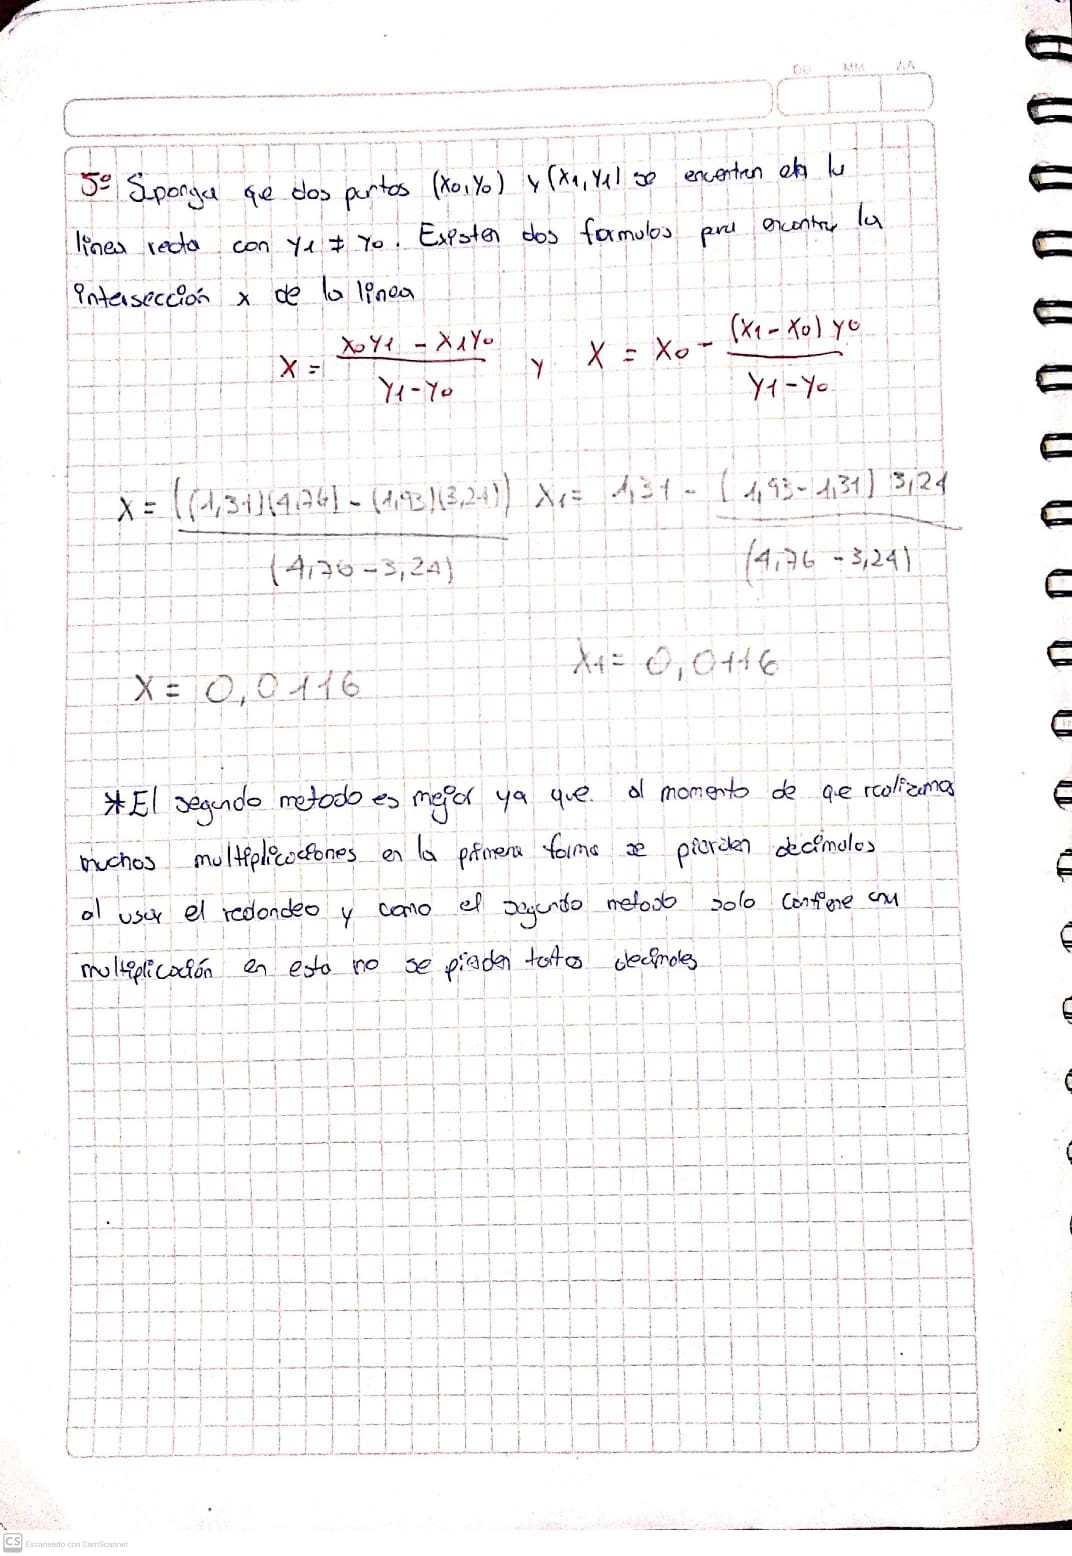 DD MM AA
5º Suponga que dos puntos (x0,y0) y (x1,y1) se encentran en la
linea recta con y1 ≠ y0. Existen dos formulas para encontrar la
intersección x de la linea
x = (x0y1 - x1y0) / (y1-y0) y x = x0 - ((x1-x0) y0) / (y1-y0)
x = ((1,31)(4,76) - (1,93)(3,24)) / (4,76-3,24) x1= 1,31 - (1,93-1,31) 3,24 / (4,76 - 3,24)
x = 0,0116 x1= 0,0116
*El segundo metodo es mejor ya que al momento de que realizamos
muchos multiplicaciones en la primera forma se pierden decimales
al usar el redondeo y como el segundo metodo solo contiene una
multiplicación en esta no se pierden tantos decimales
CS Escaneado con CamScanner